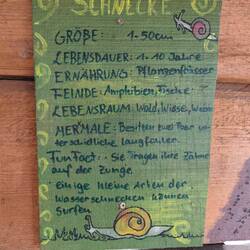 SCHNECKE
GRÖßE: 1-50cm
LEBENSDAUER: 1-10 Jahre
ERNÄHRUNG: Pflanzenfresser
FEINDE: Amphibien, Fische
LEBENSRAUM: Wald, Wiese,
MERMALE: Besitzen zwei Paar un-
terschiedliche langfühler.
FunFact: Sie tragen ihre Zähne
auf der Zunge.
Einige kleine Arten der
wasserschnecken können
Surfen